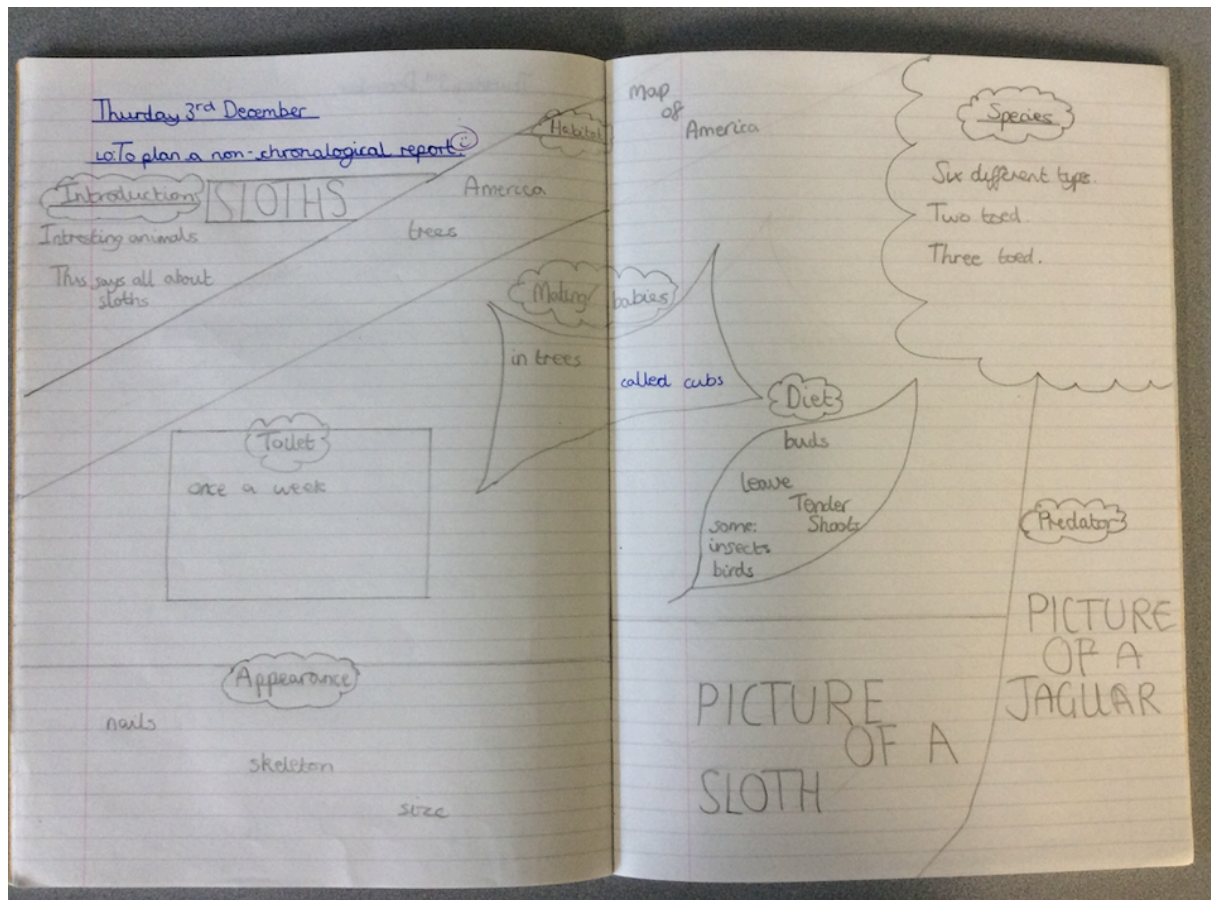 Thurday 3rd December
LO: To plan a non-chronalogical report.
Introduction
SLOTHS
Intresting animals
This says all about
sloths
Habitat
America
trees
Map
of
America
Mating/babies
in trees
called cubs
Toilet
once a week
Appearance
nails
skeleton
size
Species
Six different typs.
Two toed.
Three toed.
Diet
buds
leave
Tender
Shoots
some:
insects
birds
Predator
PICTURE
OF A
JAGUAR
PICTURE
OF A
SLOTH